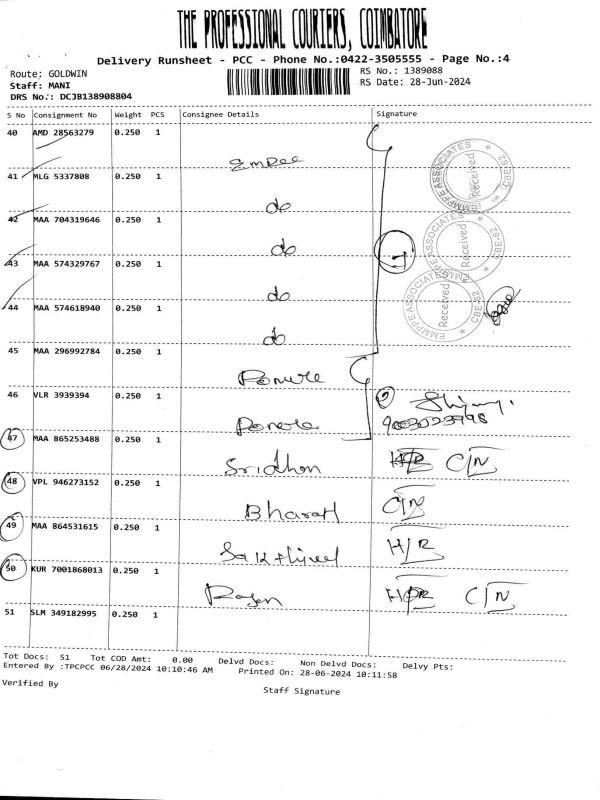 THE PROFESSIONAL COURIERS, COIMBATORE
Delivery Runsheet - PCC - Phone No.:0422-3505555 - Page No.:4
Route; GOLDWIN
RS No.: 1389088
Staff: MANI
RS Date: 28-Jun-2024
DRS No.: DCJB138908804
S No Consignment No Weight PCS Consignee Details Signature
40 AMD 28563279 0.250 1
41 MLG 5337808 0.250 1
do
42 MAA 704319646 0.250 1
do
43 MAA 574329767 0.250 1
do
44 MAA 574618940 0.250 1
do
EMMPPE ASSOCIATES Received CBE-62
EMMPPE ASSOCIATES Received CBE-62
EMMPPE ASSOCIATES Received CBE-62
45 MAA 296992784 0.250 1
46 VLR 3939394 0.250 1
47 MAA 865253488 0.250 1
Sridhon C/N
48 VPL 946273152 0.250 1
Bharath C/N
49 MAA 864531615 0.250 1
Sakthivel H/R
50 KUR 7001868013 0.250 1
Rajan C/N
51 SLM 349182995 0.250 1
Tot Docs: 51 Tot COD Amt: 0.00 Delvd Docs: Non Delvd Docs: Delvy Pts:
Entered By :TPCPCC 06/28/2024 10:10:46 AM Printed On: 28-06-2024 10:11:58
Verified By
Staff Signature